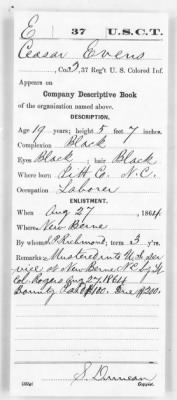 E 37 U.S.C.T.
Ceasar Evens
, Co. B, 37 Reg't U. S. Colored Inf.
Appears on
Company Descriptive Book
of the organization named above.
DESCRIPTION.
Age 19 years; height 5 feet 7 inches.
Complexion Black
Eyes Black; hair Black
Where born Pitt Co. N.C.
Occupation Laborer
ENLISTMENT.
When Aug 27, 1864
Where New Berne
By whom Richmond; term 3 y'rs.
Remarks: Mustered into U. S. ser
vice at New Berne N.C. by
Col. Rogers Aug 27 1864
Bounty Paid $100. Due $200.
S. Duncan
Copyist.